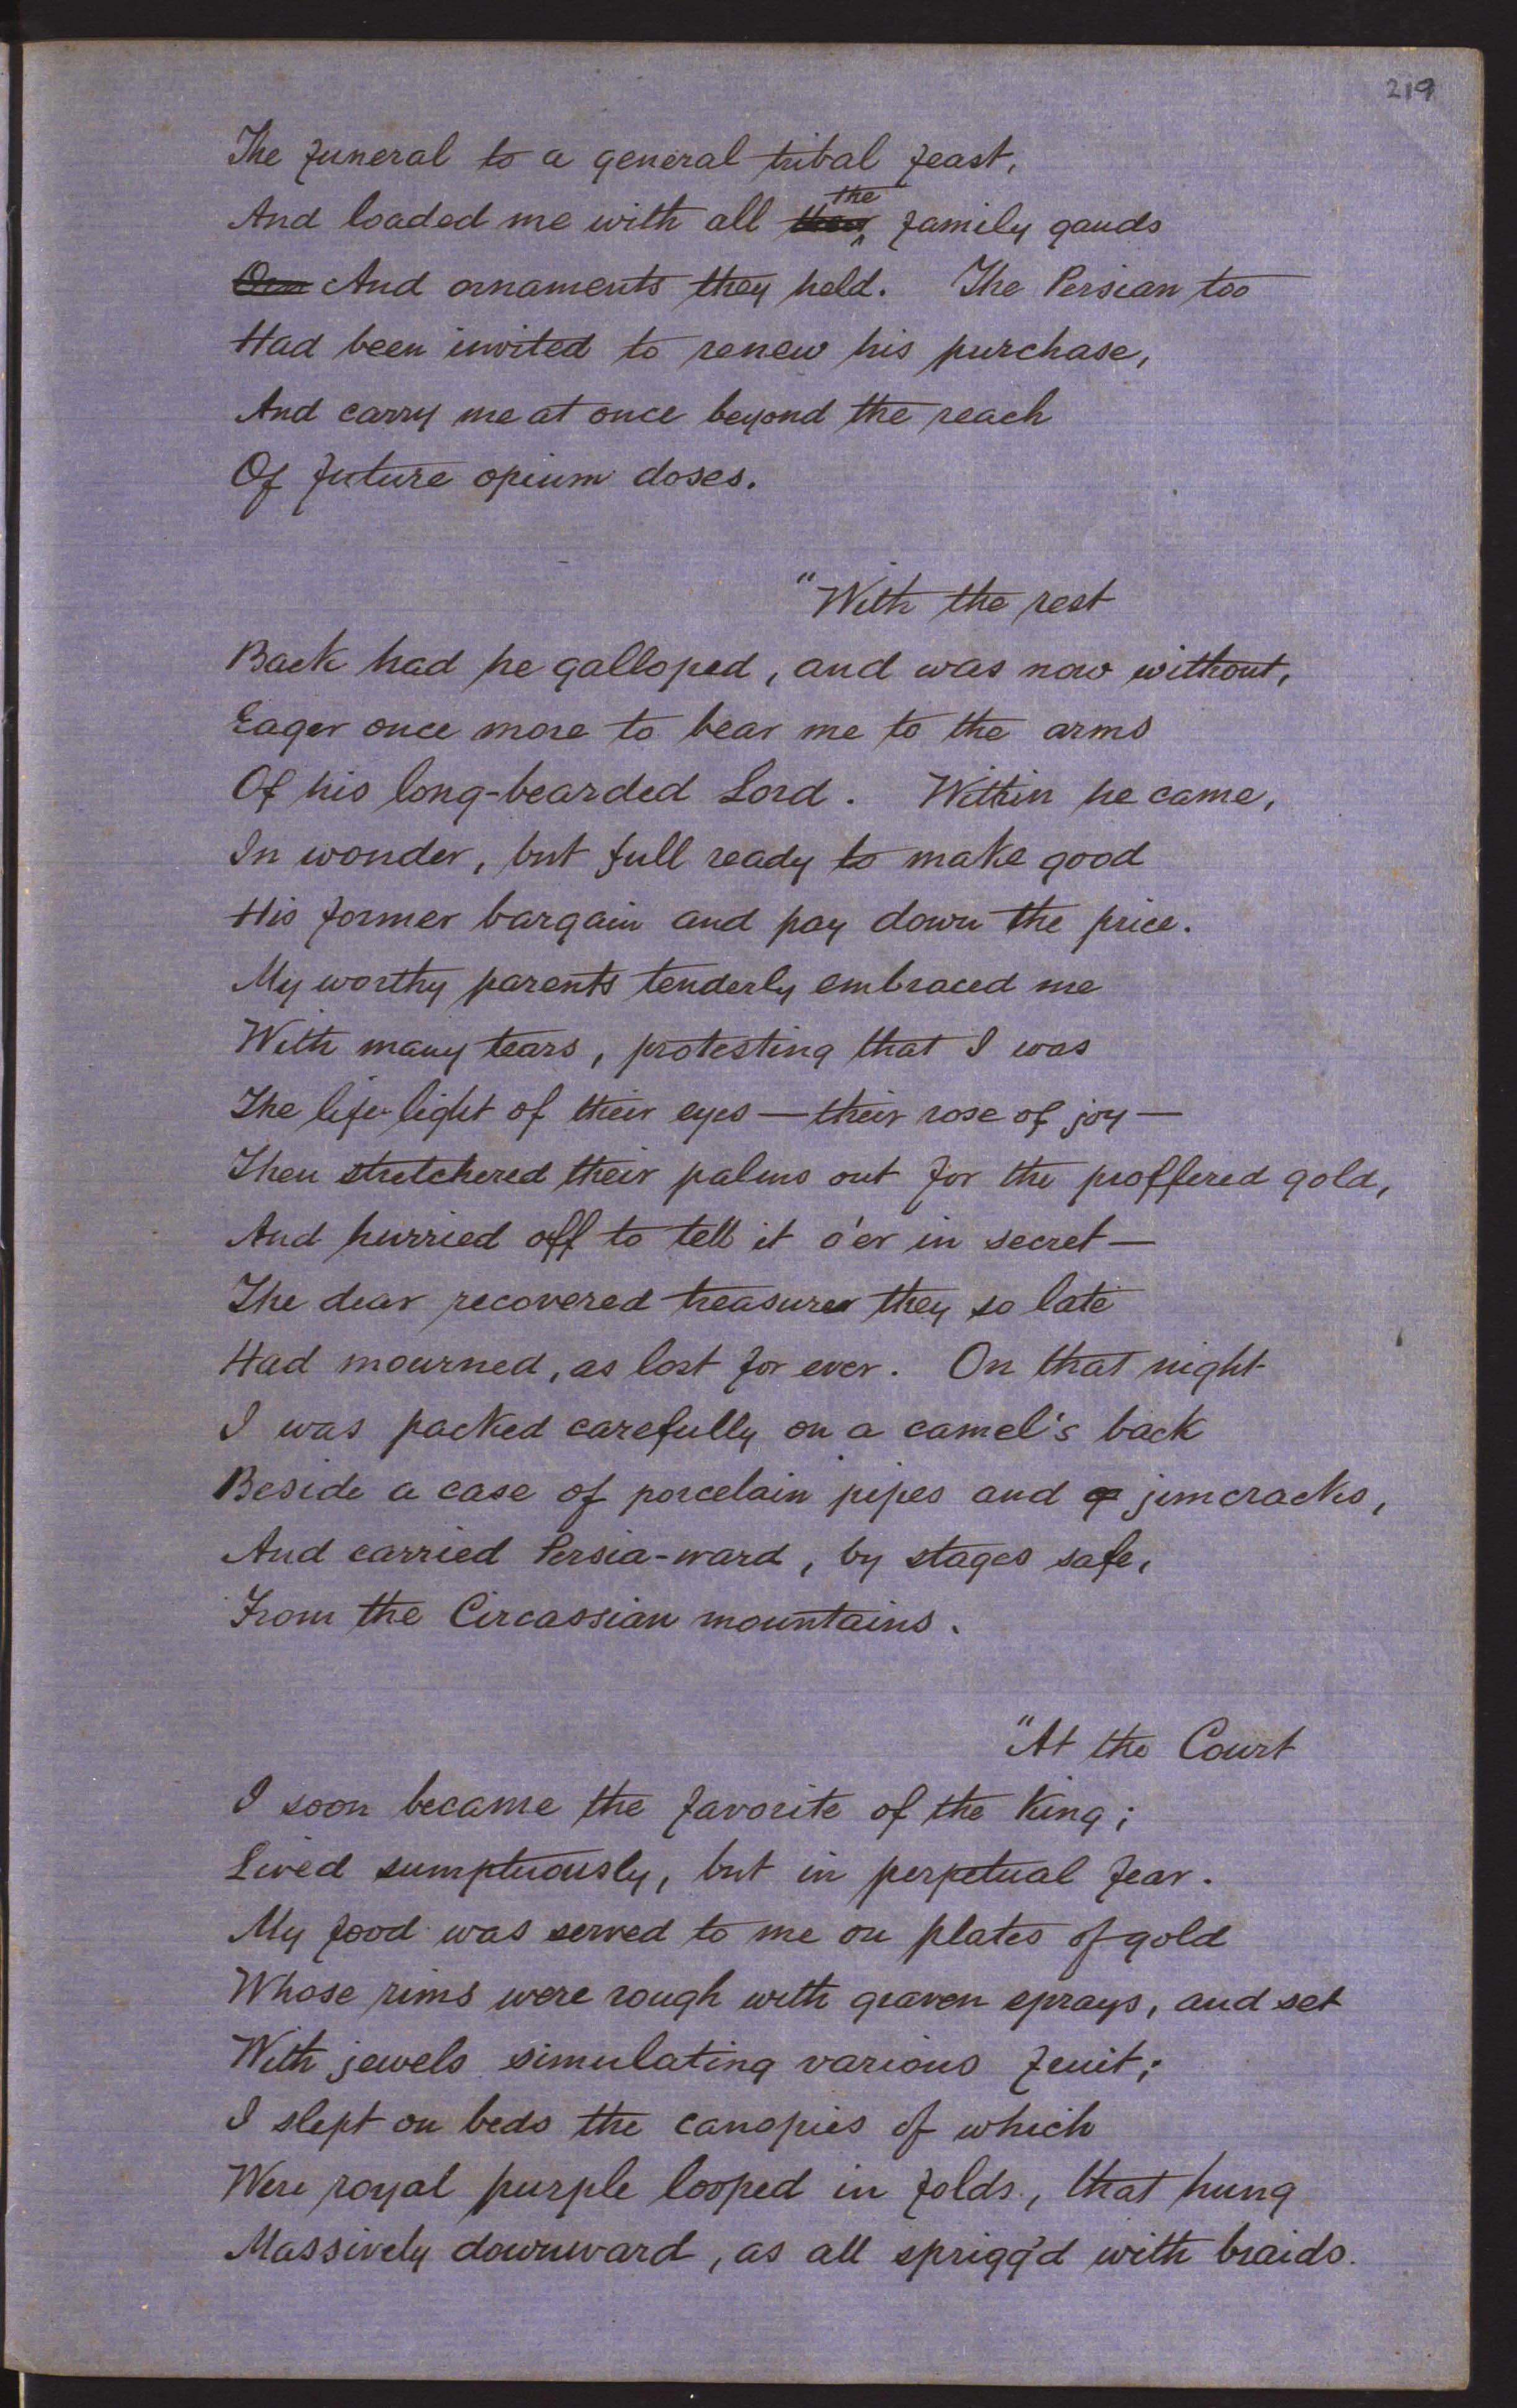 219
The funeral to a general tribal feast,
And loaded me with all the family gauds
And ornaments they held. The Persian too
Had been invited to renew his purchase,
And carry me at once beyond the reach
Of future opium doses.
"With the rest
Back had he galloped, and was now without,
Eager once more to bear me to the arms
Of his long-bearded Lord. Within he came,
In wonder, but full ready to make good
His former bargain and pay down the price.
My worthy parents tenderly embraced me
With many tears, protesting that I was
The life-light of their eyes — their rose of joy —
Then stretchered their palms out for the proffered gold,
And hurried off to tell it o'er in secret —
The dear recovered treasure they so late
Had mourned, as lost for ever. On that night
I was packed carefully on a camel's back
Beside a case of porcelain pipes and jimcracks,
And carried Persia-ward, by stages safe,
From the Circassian mountains.
"At the Court
I soon became the favorite of the King;
Lived sumptuously, but in perpetual fear.
My food was served to me on plates of gold
Whose rims were rough with graven sprays, and set
With jewels simulating various fruit;
I slept on beds the canopies of which
Were royal purple looped in folds, that hung
Massively downward, as all sprigg'd with braids.